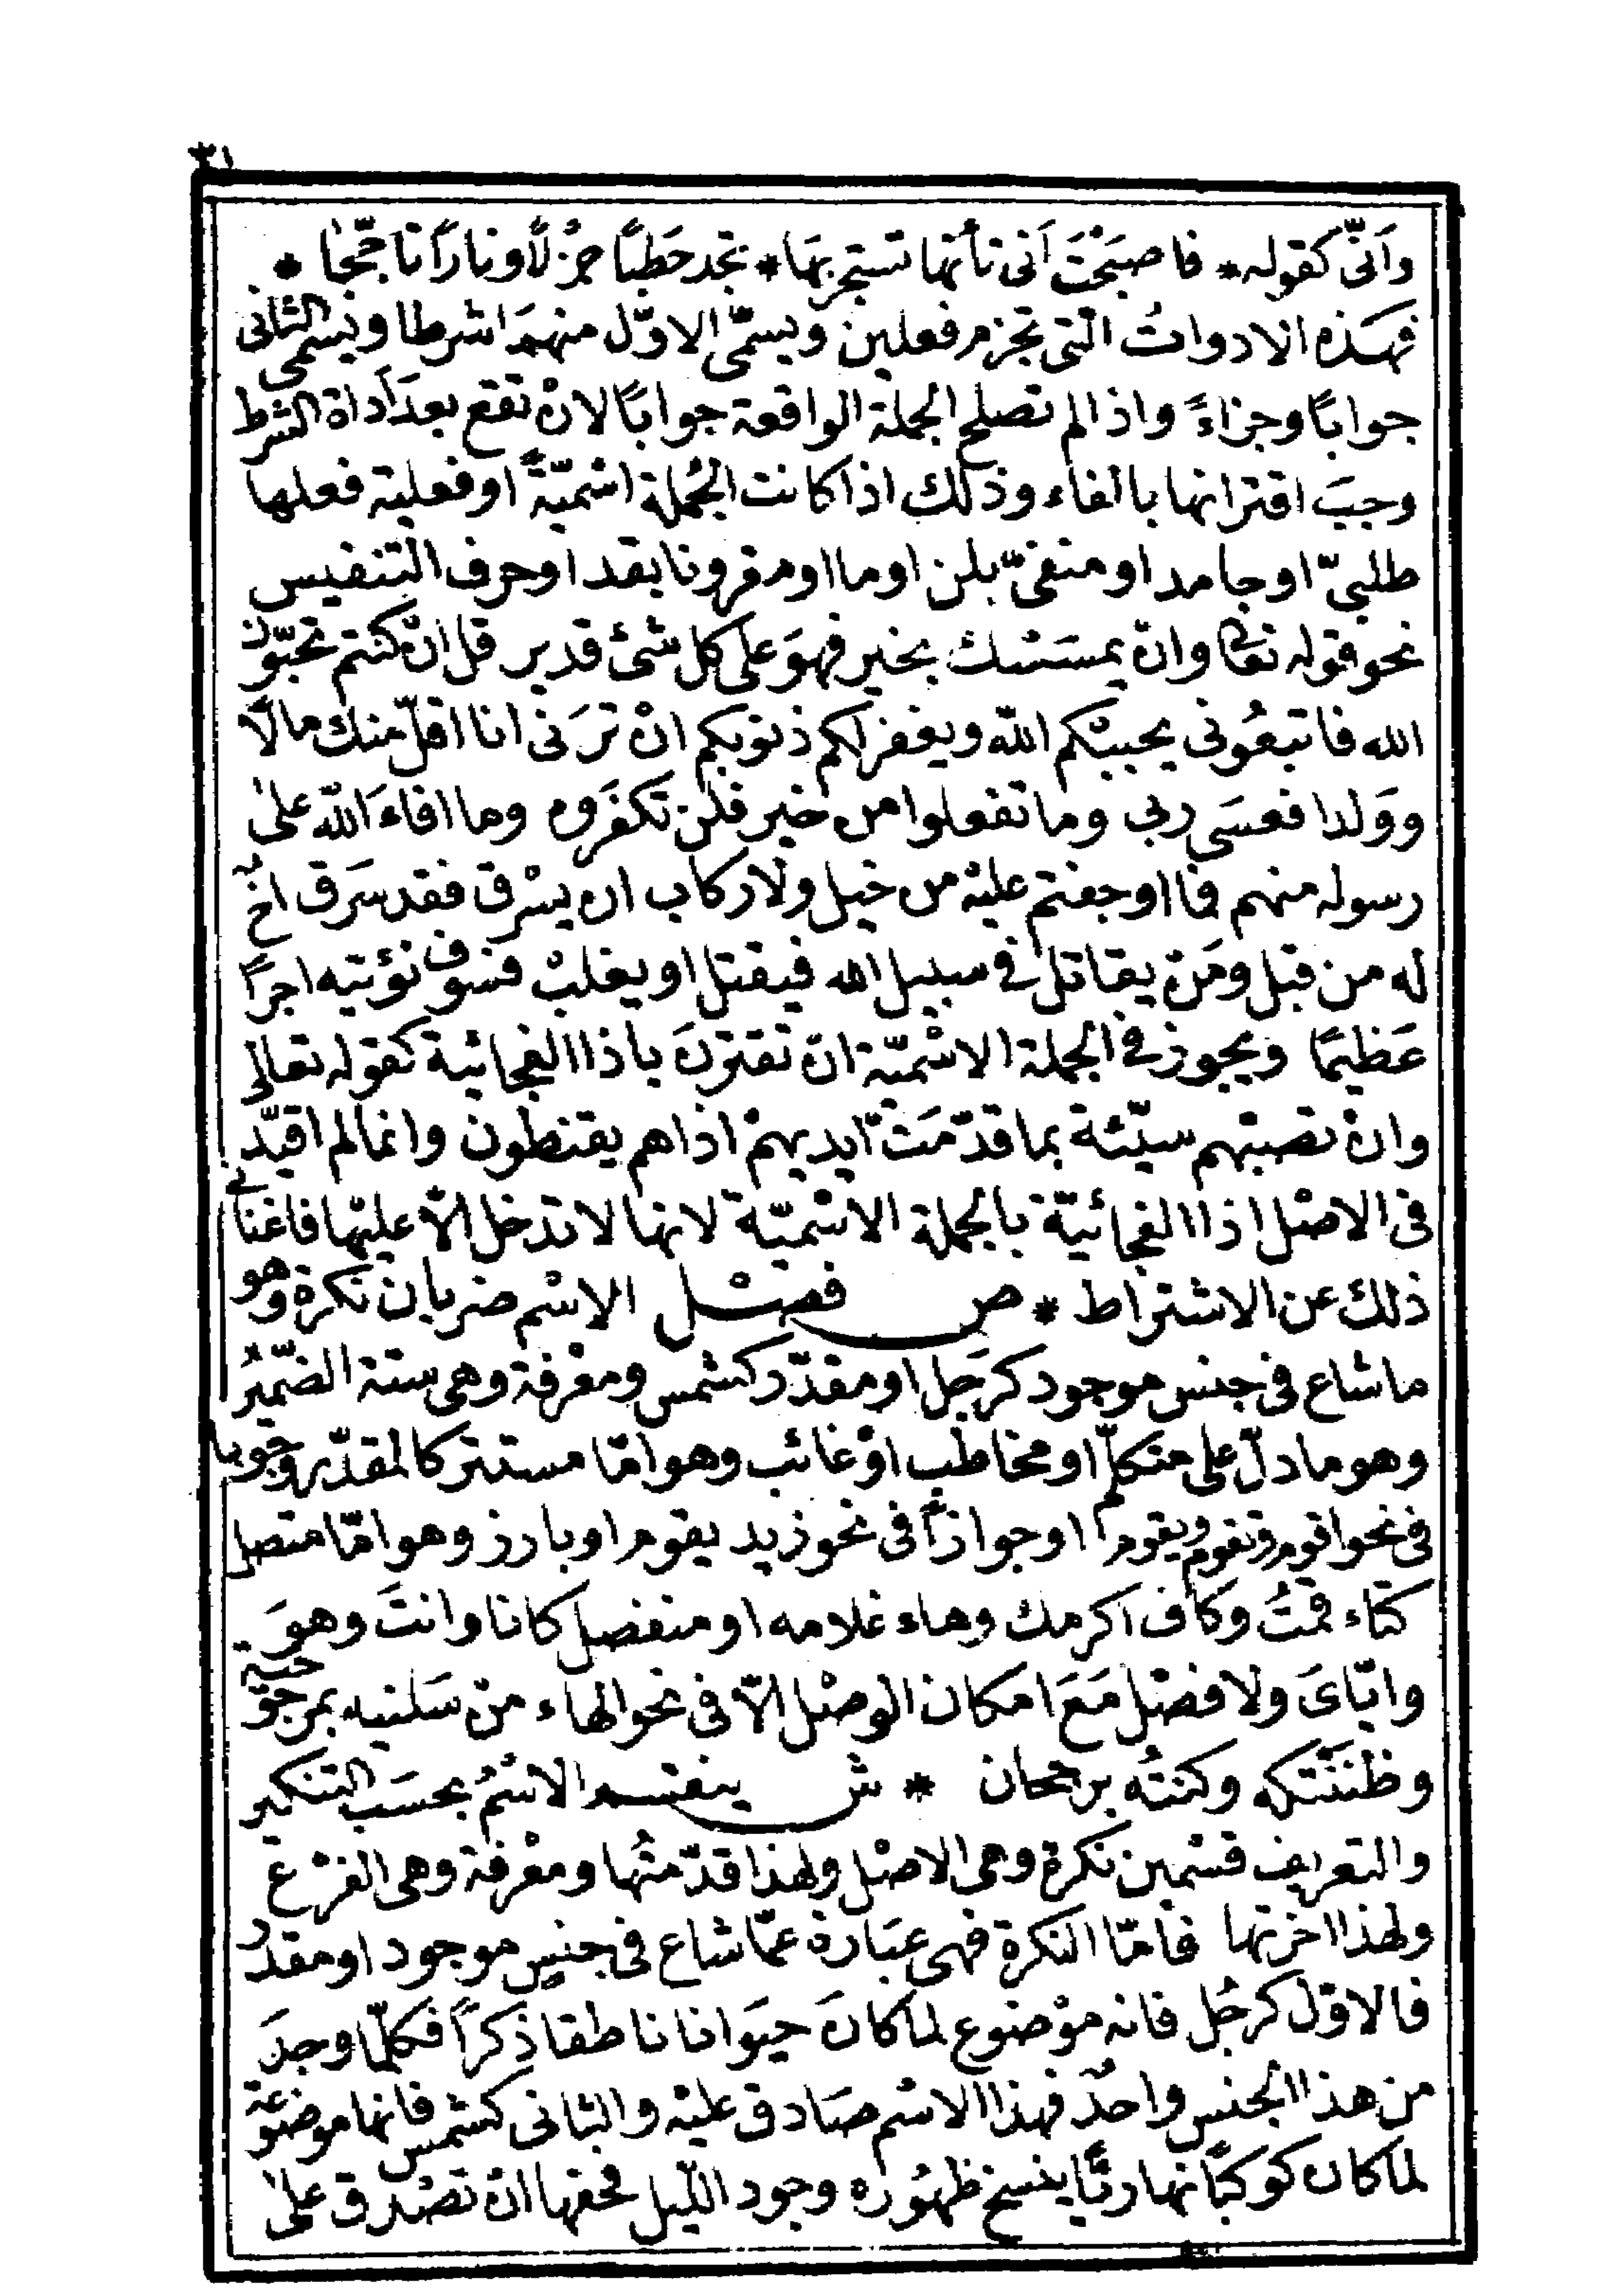 ٣١
وَأنّى كقوله * فاصبَحْتَ اَنى تأتها تستجر بهَا * تجد حَطبًا جزْلًا ونارًا تاججّا *
فهَذه الادواتُ الّتى تجزم فعلين ويسمّى الاوّل منهمَا شرطا ويسمى الثانى
جوابًا وجزاءً واذا لم تصلح الجملة الواقعة جوابًا لانْ تقع بعدَ أداة الشرط
وجبَ اقترانها بالفاء وذلك اذا كانت الجُملة اسْميّةً او فعلية فعلها
طلبيّ او جامد او منفيّ بلن او ما او مقرونا بقد او حرف التنفيس
نحو قوله تعالى وانْ يمسَسْك بخير فهوَ على كل شئ قدير قل انْ كنتم تحبّون
الله فاتبعُونى يحببْكم الله ويغفر لكم ذنوبكم انْ ترَنى انا اقلّ منك مالًا
ووَلدا فعسَى ربى وما تفعلوا من خير فلن تكفرَوه وما افاءَ الله علىٰ
رسوله منهم فما اوجفتم عليْه من خيل ولا ركاب ان يسْرق فقد سَرق اخٌ
له من قبل ومَنْ يقاتل فى سبيل الله فيقتل او يغلبْ فسوف نؤتيه اجرًا
عَظيمًا ويجوز فى الجملة الاسْميّة انْ تقترنَ باذا الفجائية كقوله تعالى
وانْ تصبهم سيّئة بما قدّمَتْ ايديهمْ اذا هم يقنطون وانما لم اقيّد
فى الاصْل اذا الفجائيّة بالجملة الاسْميّة لانها لا تدخل الّا عليْها فاغنانى
ذلك عن الاشتراط * ص فصْل الاسْم ضربان نكرة وهو
ما شاع فى جنس موجود كرَجل او مقدّر كشمس ومعْرفة وهى ستة الضّميرُ
وهو ما دلّ على متكلّم او مخاطب اوْ غائب وهو امّا مستتر كالمقدّر وجوبا
فى نحو اقوم وتقوم ويقوم او جوازاً فى نحو زيد يقوم او بارز وهو امّا متصل
كتاء قمتُ وكاف اكرمك وهاء غلامه او منفصل كانا وانتَ وهوَ
وايّاىَ ولا فصْل مَعَ امكان الوصْل الّا فى نحو الهاء منْ سَلنيه بمرجوحية
وظننْتكه وكنتُه برجحان * ش ينقسم الاسْمُ بحسَب التنكير
والتعريف قسْمين نكرة وهى الاصْل ولهذا قدّمتُها ومعْرفة وهى الفرْع
ولهذا اخرتها فامّا النكرة فهى عبَارة عمّا شاع فى جنس موجود او مقدر
فالاوّل كرجُل فانه موْضوع لما كانَ حيَوانا ناطقا ذكرًا فكلّما وجدَ
من هذا الجنس واحدٌ فهذا الاسْم صَادق عليْه والثانى كشمس فانها موضوعة
لما كان كوكبًا نهاريًّا ينسخ ظهُوره وجود اللّيل فحقها انْ تصْدق علىٰ